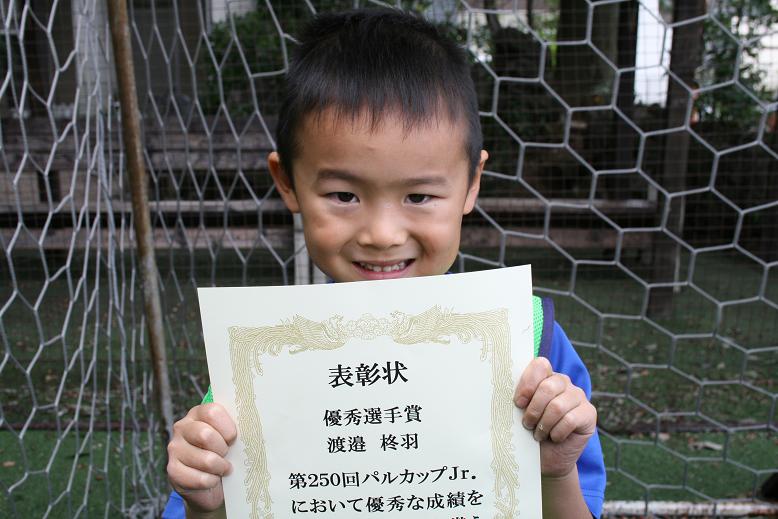 表彰状
優秀選手賞
渡邉 柊羽
第250回パルカップJr.
において優秀な成績を